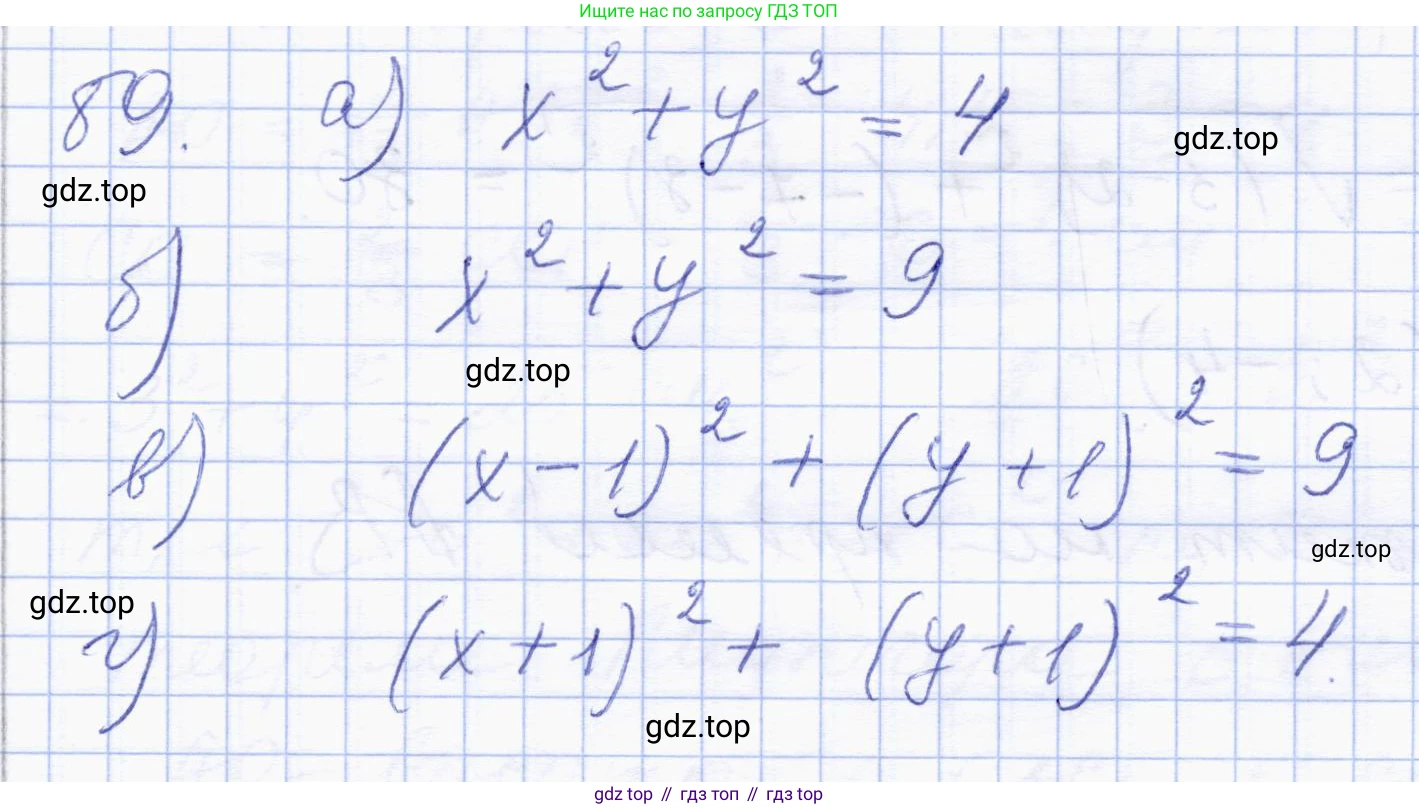 Ищите нас по запросу ГДЗ ТОП
89. а) x² + y² = 4
gdz.top
gdz.top
б) x² + y² = 9
gdz.top
в) (x – 1)² + (y + 1)² = 9
gdz.top
gdz.top
г) (x + 1)² + (y + 1)² = 4.
gdz.top
gdz top // гдз топ // гдз top